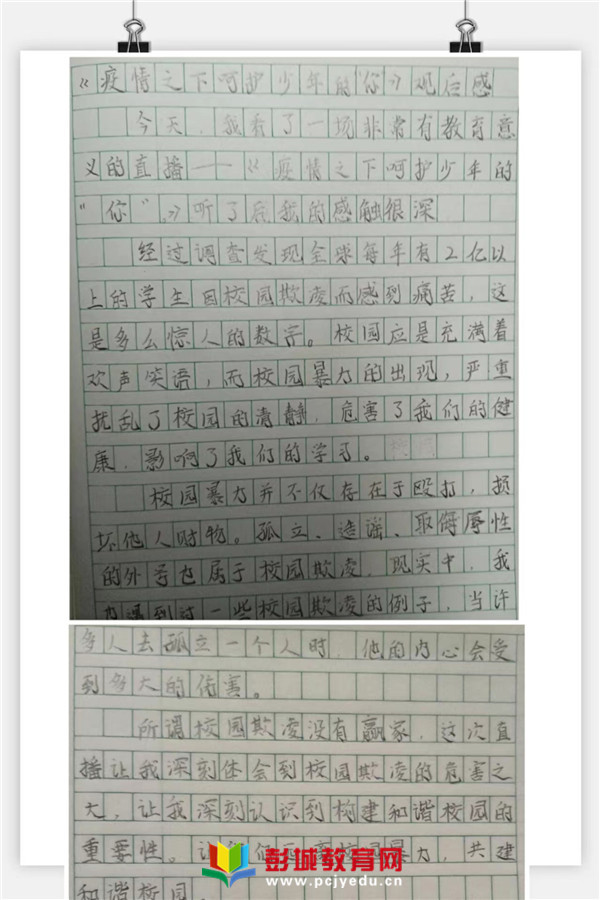 《疫情之下呵护少年的“你”》观后感
今天，我看了一场非常有教育意
义的直播——《疫情之下呵护少年的
“你”》听了后我的感触很深
经过调查发现全球每年有2亿以
上的学生因校园欺凌而感到痛苦，这
是多么惊人的数字。校园应是充满着
欢声笑语，而校园暴力的出现，严重
扰乱了校园的清静，危害了我们的健
康，影响了我们的学习。
校园暴力并不仅存在于殴打，损
坏他人财物。孤立、造谣、取侮辱性
的外号也属于校园欺凌，现实中，我
也遇到过一些校园欺凌的例子，当许
多人去孤立一个人时，他的内心会受
到多大的伤害。
所谓校园欺凌没有赢家，这次直
播让我深刻体会到校园欺凌的危害之
大，让我深刻认识到构建和谐校园的
重要性。让 力，共建
和谐校园。
彭城教育网
www.pcjyedu.cn